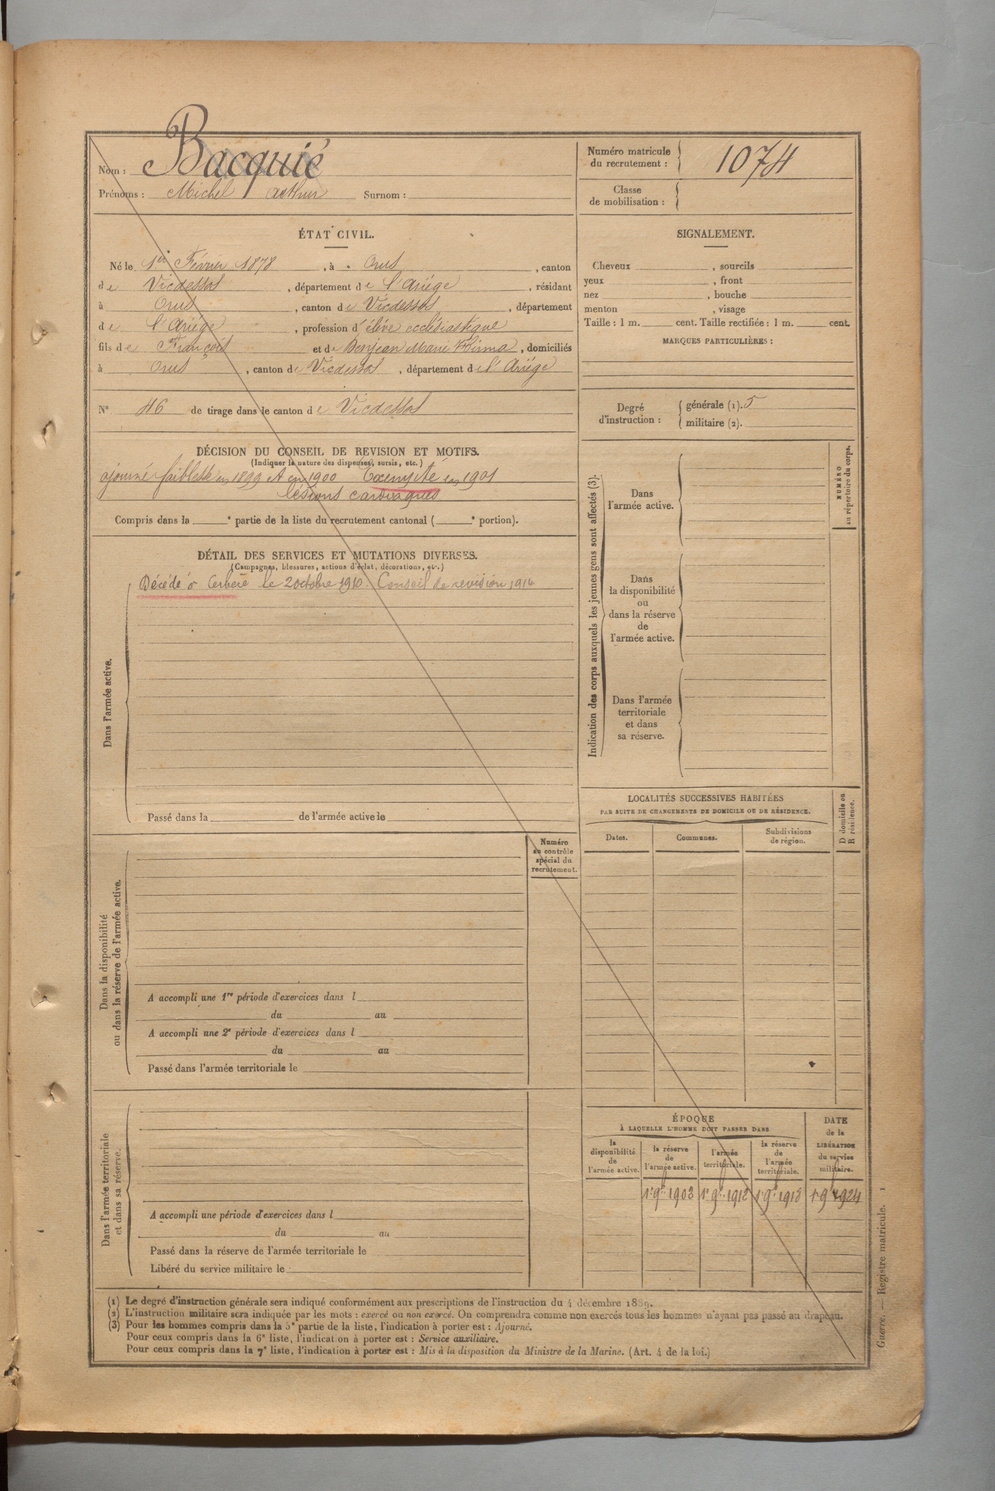 Nom : Bacquié
Prénoms : Michel Arthur Surnom :
Numéro matricule du recrutement : 1074
Classe de mobilisation :
ÉTAT CIVIL.
Né le 1er Février 1878, à Orus, canton
de Vicdessos, département de l'Ariége, résidant
à Orus, canton de Vicdessos, département
de l'Ariége, profession d'élève ecclésiastique
fils de François et de Marie, domiciliés
à Orus, canton de Vicdessos, département de l'Ariége
N° 46 de tirage dans le canton de Vicdessos
SIGNALEMENT.
Cheveux , sourcils
yeux , front
nez , bouche
menton , visage
Taille : 1 m. cent. Taille rectifiée : 1 m. cent.
MARQUES PARTICULIÈRES :
Degré d'instruction : générale (1). 5
militaire (2).
DÉCISION DU CONSEIL DE REVISION ET MOTIFS.
(Indiquer la nature des dispenses, sursis, etc.)
ajourné faiblesse en 1899 et en 1900 Exempté en 1901
lésions cardiaques
Compris dans la e partie de la liste du recrutement cantonal ( e portion).
DÉTAIL DES SERVICES ET MUTATIONS DIVERSES.
(Campagnes, blessures, actions d'éclat, décorations, etc.)
Décédé à Cerbère le 2 octobre 1910. Conseil de revision 1914
Dans l'armée active.
Passé dans la de l'armée active le
Indication des corps auxquels les jeunes gens sont affectés (3).
Dans l'armée active.
Dans la disponibilité ou dans la réserve de l'armée active.
Dans l'armée territoriale et dans sa réserve.
NUMÉRO au répertoire du corps.
LOCALITÉS SUCCESSIVES HABITÉES
PAR SUITE DE CHANGEMENTS DE DOMICILE OU DE RÉSIDENCE.
Dates. Communes. Subdivisions de région.
D domicile ou R résidence.
Numéro au contrôle spécial du recrutement.
Dans la disponibilité ou dans la réserve de l'armée active.
A accompli une 1re période d'exercices dans l
du au
A accompli une 2e période d'exercices dans l
du au
Passé dans l'armée territoriale le
Dans l'armée territoriale et dans sa réserve.
A accompli une période d'exercices dans l
du au
Passé dans la réserve de l'armée territoriale le
Libéré du service militaire le
ÉPOQUE
À LAQUELLE L'HOMME DOIT PASSER DANS
la disponibilité de l'armée active.
la réserve de l'armée active.
l'armée territoriale.
la réserve de l'armée territoriale.
DATE de la LIBÉRATION du service militaire.
1er 9bre 1902 1er 9bre 1912 1er 9bre 1918 1er 9bre 1924
(1) Le degré d'instruction générale sera indiqué conformément aux prescriptions de l'instruction du 4 décembre 1889.
(2) L'instruction militaire sera indiquée par les mots : exercé ou non exercé. On comprendra comme non exercés tous les hommes n'ayant pas passé au drapeau.
(3) Pour les hommes compris dans la 5e partie de la liste, l'indication à porter est : Ajourné.
Pour ceux compris dans la 6e liste, l'indication à porter est : Service auxiliaire.
Pour ceux compris dans la 7e liste, l'indication à porter est : Mis à la disposition du Ministre de la Marine. (Art. 4 de la loi.)
Guerre. — Registre matricule. 1